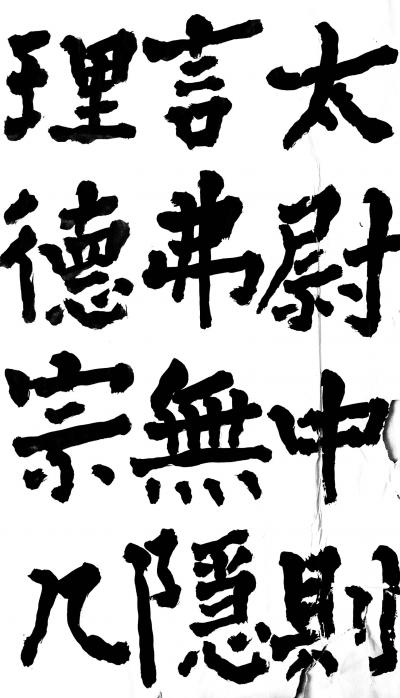 太尉中則
言弗無隱
理德宗几